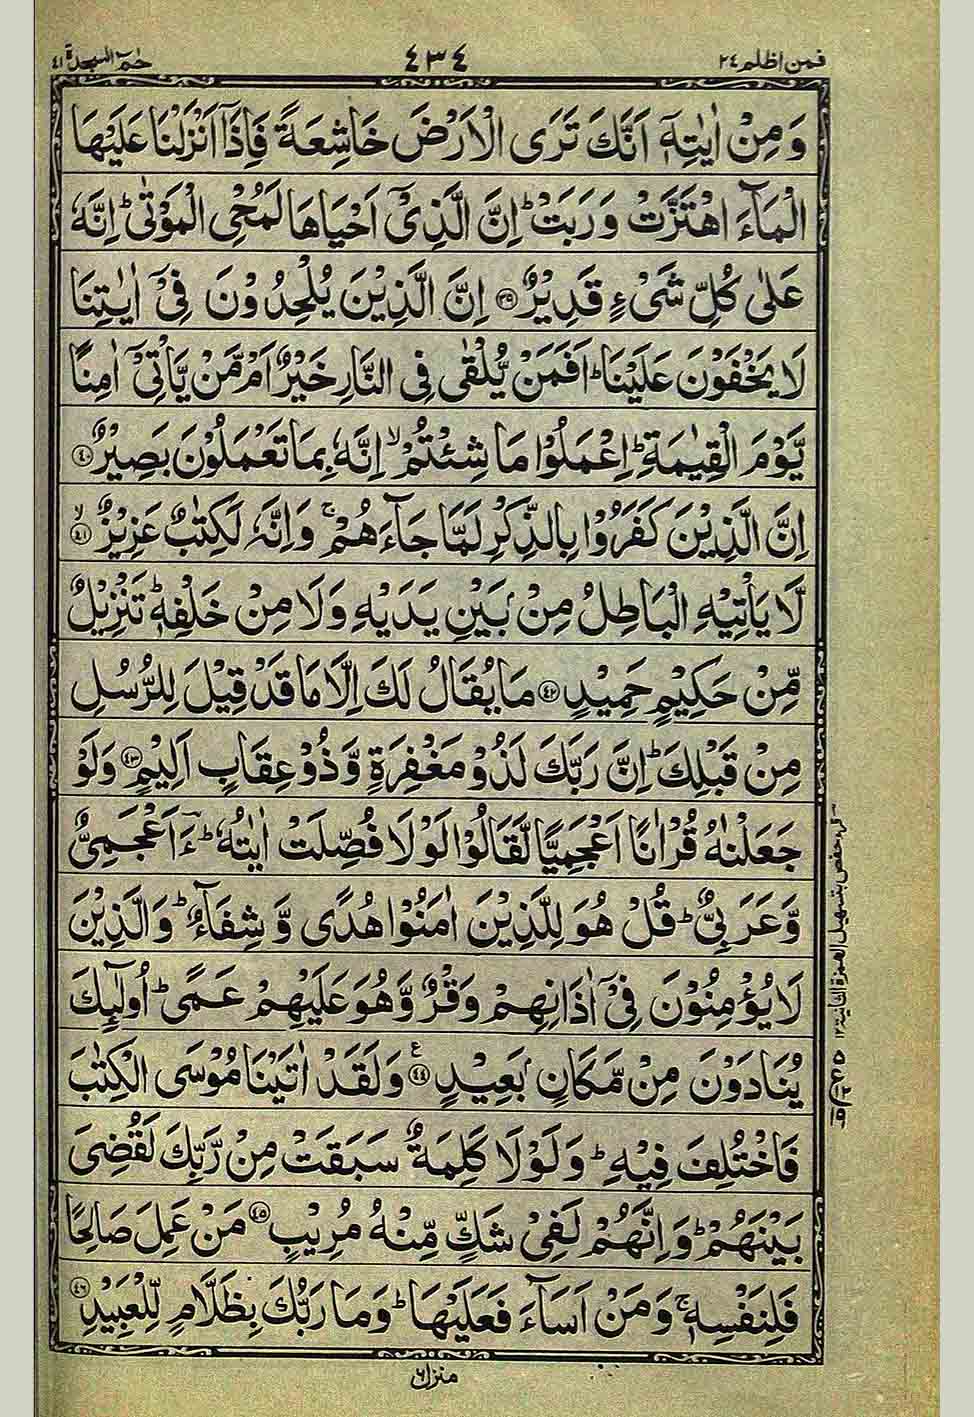 فمن اظلم ٢٤
٤٣٤
حٰمٓ السجدة ٤١
وَمِنْ اٰيٰتِهٖٓ اَنَّكَ تَرَى الْاَرْضَ خَاشِعَةً فَاِذَآ اَنْزَلْنَا عَلَيْهَا
الْمَآءَ اهْتَزَّتْ وَرَبَتْ ؕ اِنَّ الَّذِيْٓ اَحْيَاهَا لَمُحْيِ الْمَوْتٰى ؕ اِنَّهٗ
عَلٰى كُلِّ شَيْءٍ قَدِيْرٌ ٣٩ اِنَّ الَّذِيْنَ يُلْحِدُوْنَ فِيْٓ اٰيٰتِنَا
لَا يَخْفَوْنَ عَلَيْنَا ؕ اَفَمَنْ يُّلْقٰى فِي النَّارِ خَيْرٌ اَمْ مَّنْ يَّاْتِيْٓ اٰمِنًا
يَّوْمَ الْقِيٰمَةِ ؕ اِعْمَلُوْا مَا شِئْتُمْ ۙ اِنَّهٗ بِمَا تَعْمَلُوْنَ بَصِيْرٌ ٤٠
اِنَّ الَّذِيْنَ كَفَرُوْا بِالذِّكْرِ لَمَّا جَآءَهُمْ ۚ وَاِنَّهٗ لَكِتٰبٌ عَزِيْزٌ ۙ ٤١
لَّا يَاْتِيْهِ الْبَاطِلُ مِنْۢ بَيْنِ يَدَيْهِ وَلَا مِنْ خَلْفِهٖ ؕ تَنْزِيْلٌ
مِّنْ حَكِيْمٍ حَمِيْدٍ ٤٢ مَا يُقَالُ لَكَ اِلَّا مَا قَدْ قِيْلَ لِلرُّسُلِ
مِنْ قَبْلِكَ ؕ اِنَّ رَبَّكَ لَذُوْ مَغْفِرَةٍ وَّذُوْ عِقَابٍ اَلِيْمٍ ٤٣ وَلَوْ
جَعَلْنٰهُ قُرْاٰنًا اَعْجَمِيًّا لَّقَالُوْا لَوْلَا فُصِّلَتْ اٰيٰتُهٗ ؕ ءَاَعْجَمِيٌّ
وَّعَرَبِيٌّ ؕ قُلْ هُوَ لِلَّذِيْنَ اٰمَنُوْا هُدًى وَّشِفَآءٌ ؕ وَالَّذِيْنَ
لَا يُؤْمِنُوْنَ فِيْٓ اٰذَانِهِمْ وَقْرٌ وَّهُوَ عَلَيْهِمْ عَمًى ؕ اُولٰٓئِكَ
يُنَادَوْنَ مِنْ مَّكَانٍۢ بَعِيْدٍ ٤٤ ع وَلَقَدْ اٰتَيْنَا مُوْسَى الْكِتٰبَ
فَاخْتُلِفَ فِيْهِ ؕ وَلَوْلَا كَلِمَةٌ سَبَقَتْ مِنْ رَّبِّكَ لَقُضِيَ
بَيْنَهُمْ ؕ وَاِنَّهُمْ لَفِيْ شَكٍّ مِّنْهُ مُرِيْبٍ ٤٥ مَنْ عَمِلَ صَالِحًا
فَلِنَفْسِهٖ ۚ وَمَنْ اَسَآءَ فَعَلَيْهَا ؕ وَمَا رَبُّكَ بِظَلَّامٍ لِّلْعَبِيْدِ ٤٦
حفص بتسهيل الهمزة الثانية ١٢
منزل ٦